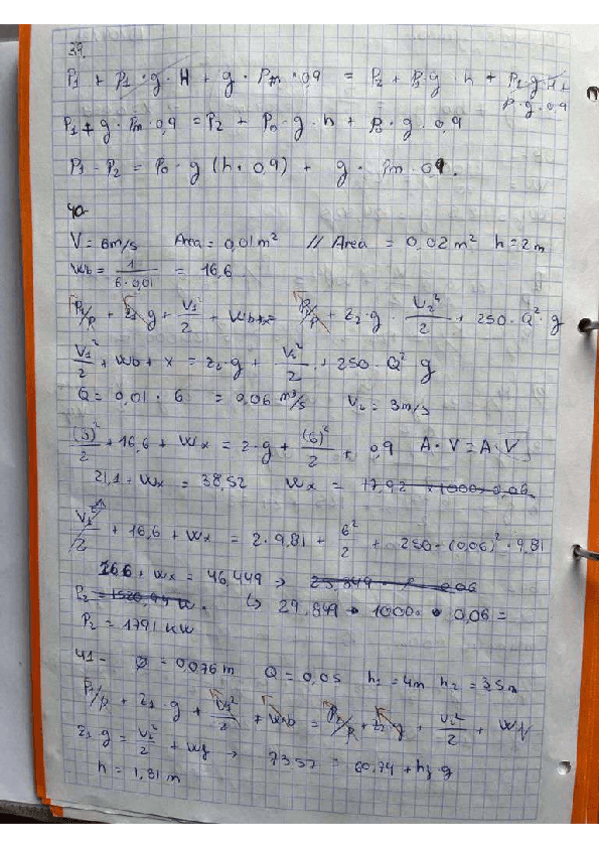 39.
P1 + P1·g·H + g·Pm·0,9 = P2 + P0·g·h + P1·g·H +
P·g·0,9
P1 + g·Pm·0,9 = P2 + P0·g·h + P0·g·0,9
P1 - P2 = P0·g (h·0,9) + g·Pm·0,9.
40-
V = 6m/s Area = 0,01m² // Area = 0,02m² h = 2m
Wb = 1/6·0,01 = 16,6
P1/P + z1·g + V1²/2 + Wb+x = P2/P + z2·g · V2²/2 + 250·Q²·g
V1²/2 + Wb + x = z2·g + V2²/2 + 250·Q² g
Q = 0,01·6 = 0,06 m³/s V2 = 3m/s
(3)²/2 + 16,6 + Wx = 2·g + (6)²/2 + 0,9 A·V = A·V
21,1 + Wx = 38,52 Wx = 17,92 x 1000·0,06
V1²/2 + 16,6 + Wx = 2·9,81 + 6²/2 + 250·(0,06)²·9,81
16.6 + Wx = 46,449 → 29,849 · 1000 · 0,06 =
P2 = 1791 KW
41- Ø = 0,076m Q = 0,05 h1 = 4m h2 = 3,5m
P1/P + z1·g + V1²/2 + Wb = P2/P + z2·g + V2²/2 + Wf
z1·g = V2²/2 + Wf → 73,57 = 60,74 + hf·g
h = 1,31 m